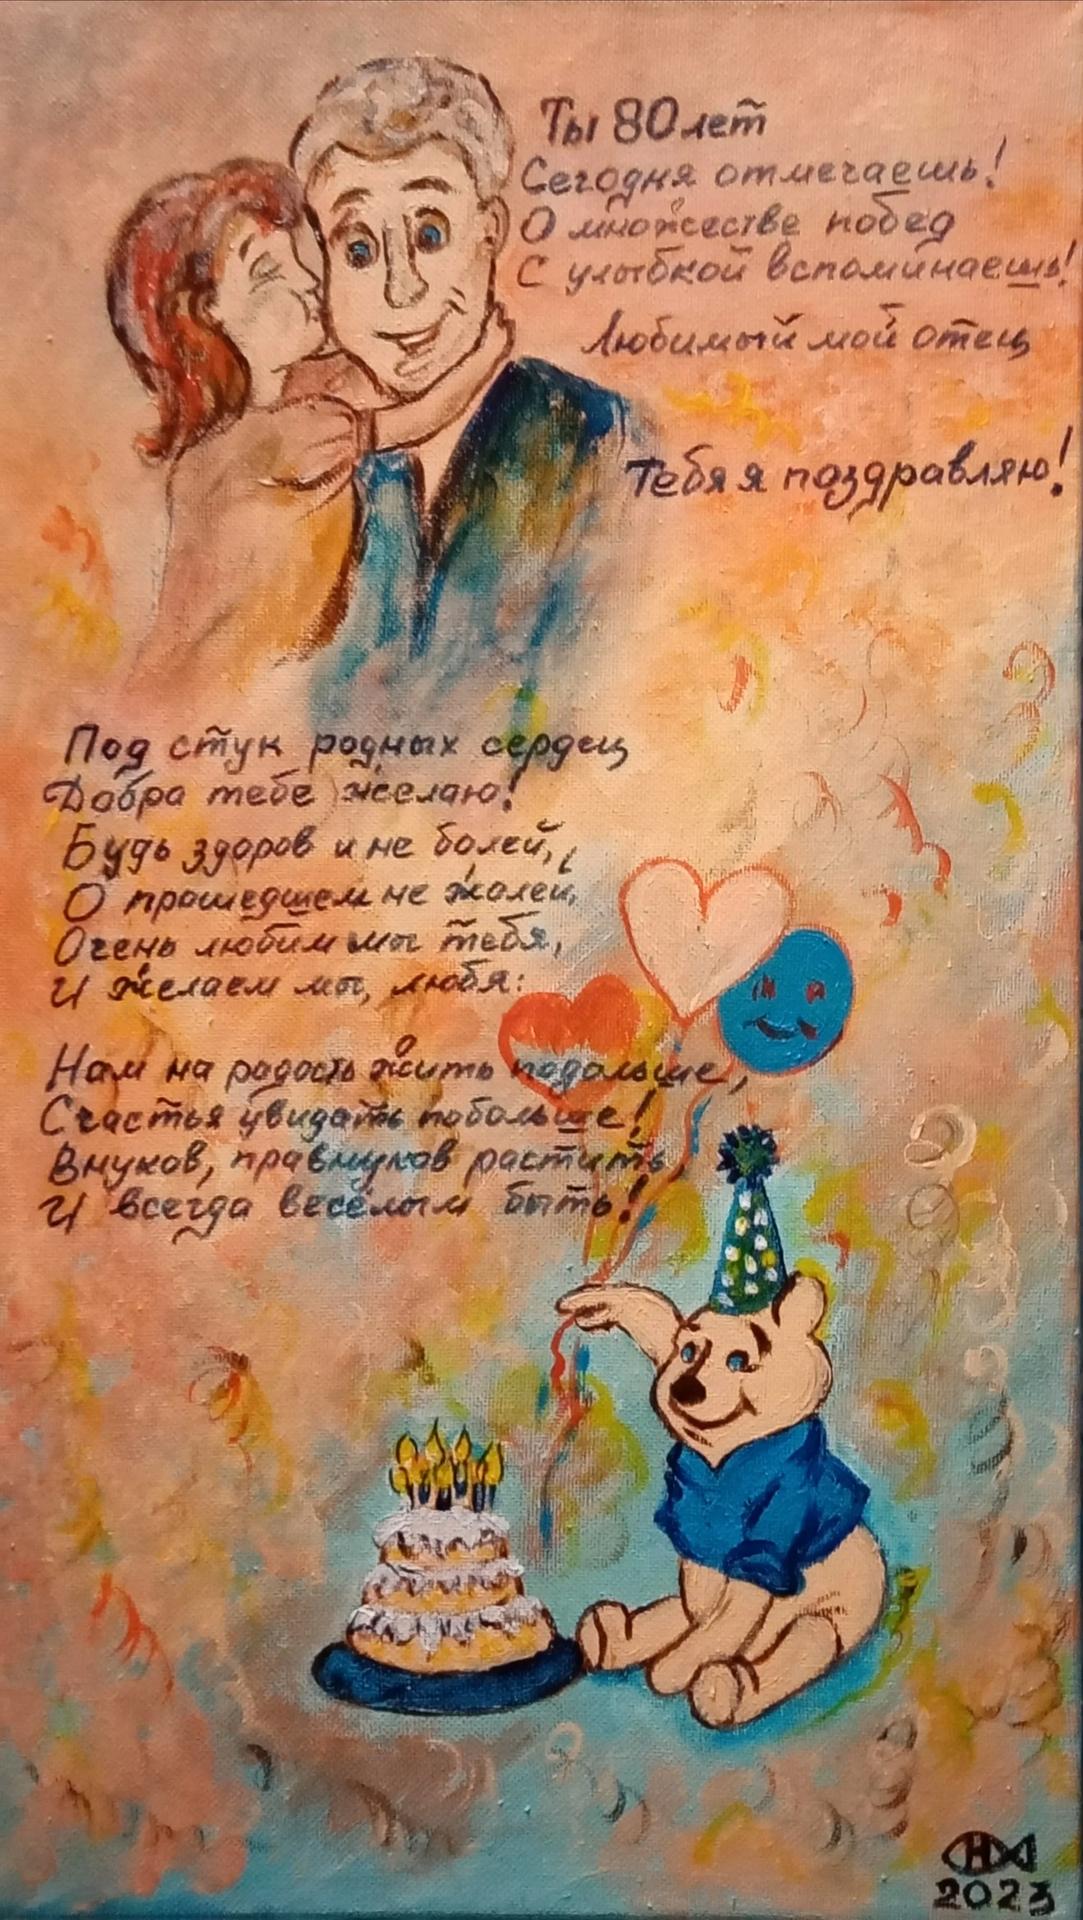 Ты 80 лет
Сегодня отмечаешь!
О множестве побед
С улыбкой вспоминаешь!
Любимый мой отец
Тебя я поздравляю!
Под стук родных сердец
Добра тебе желаю!
Будь здоров и не болей,
О прошедшем не жалей,
Очень любим мы тебя,
И желаем мы, любя:
Нам на радость жить подольше,
Счастья увидать побольше!
Внуков, правнуков растить,
И всегда весёлым быть!
Н
2023